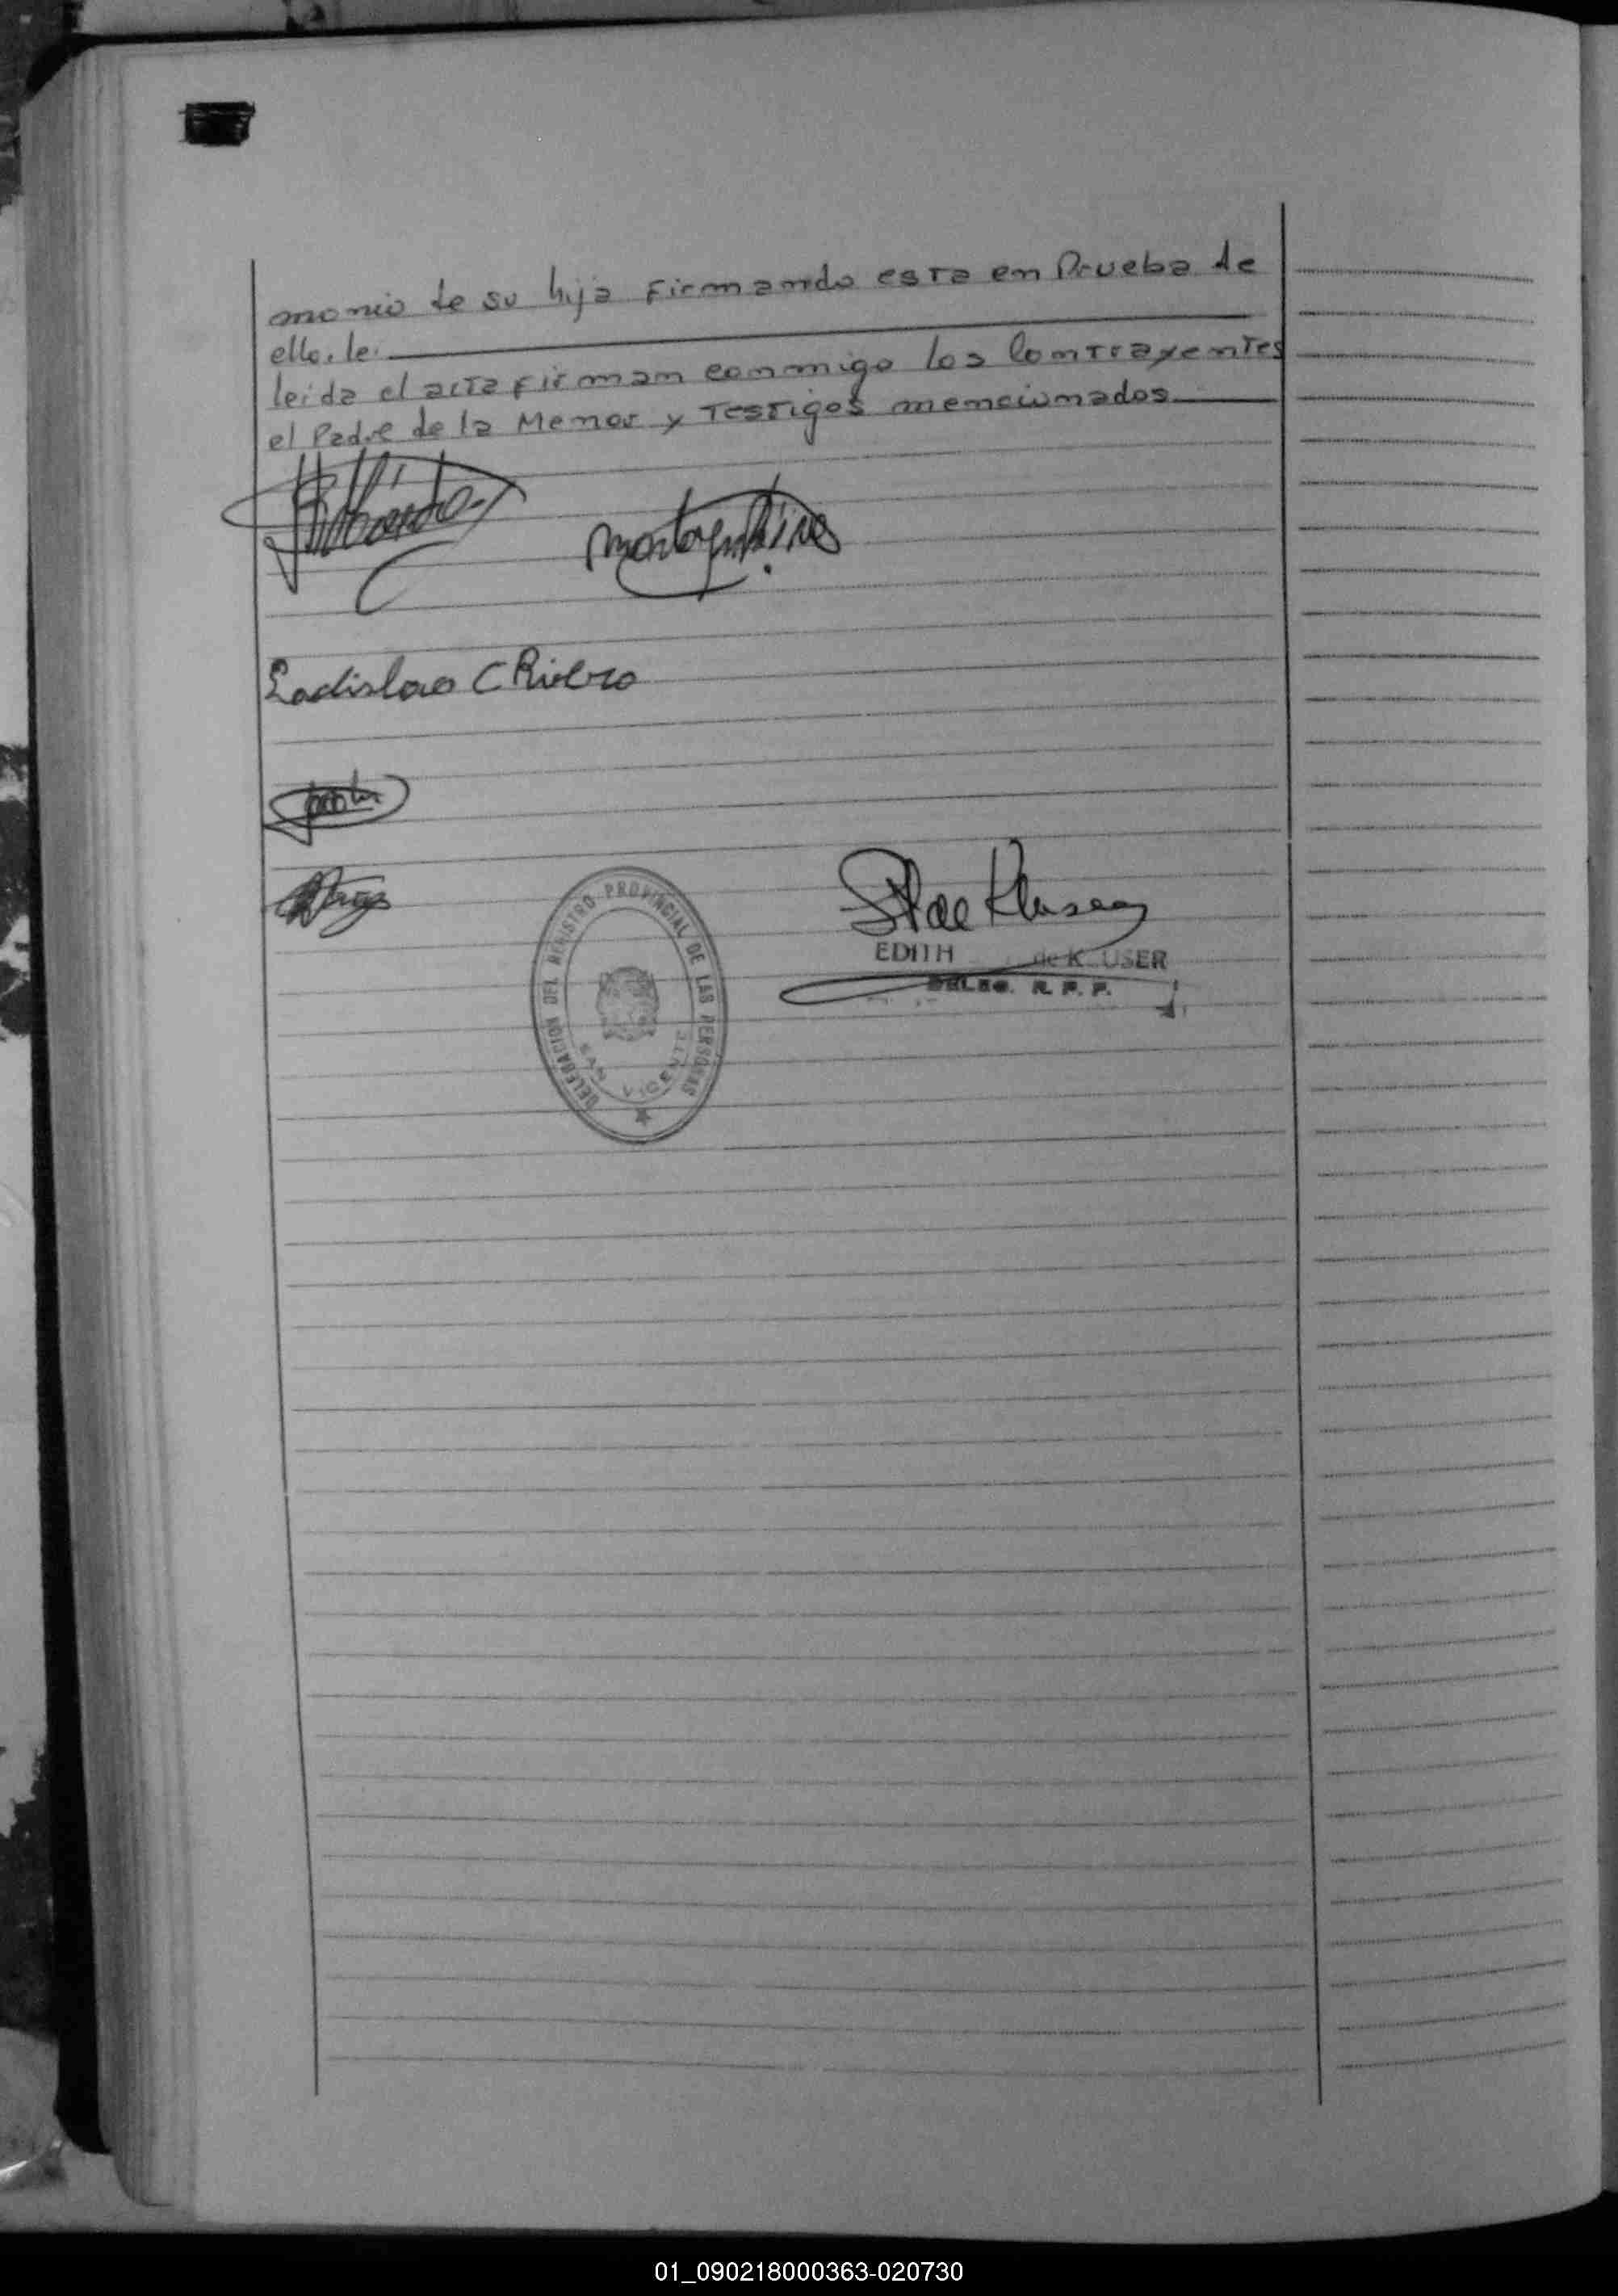 monio de su hija Firmando esta en Prueba de
ello. le.
leida el acta Firman conmigo los Contrayentes
el Padre de la Menor y Testigos mencionados
Ladislao C Rivero
DELEGACION DEL REGISTRO PROVINCIAL DE LAS PERSONAS
SAN VICENTE
de Kluser
EDITH de K USER
DELEG. R. P. P.
01_090218000363-020730